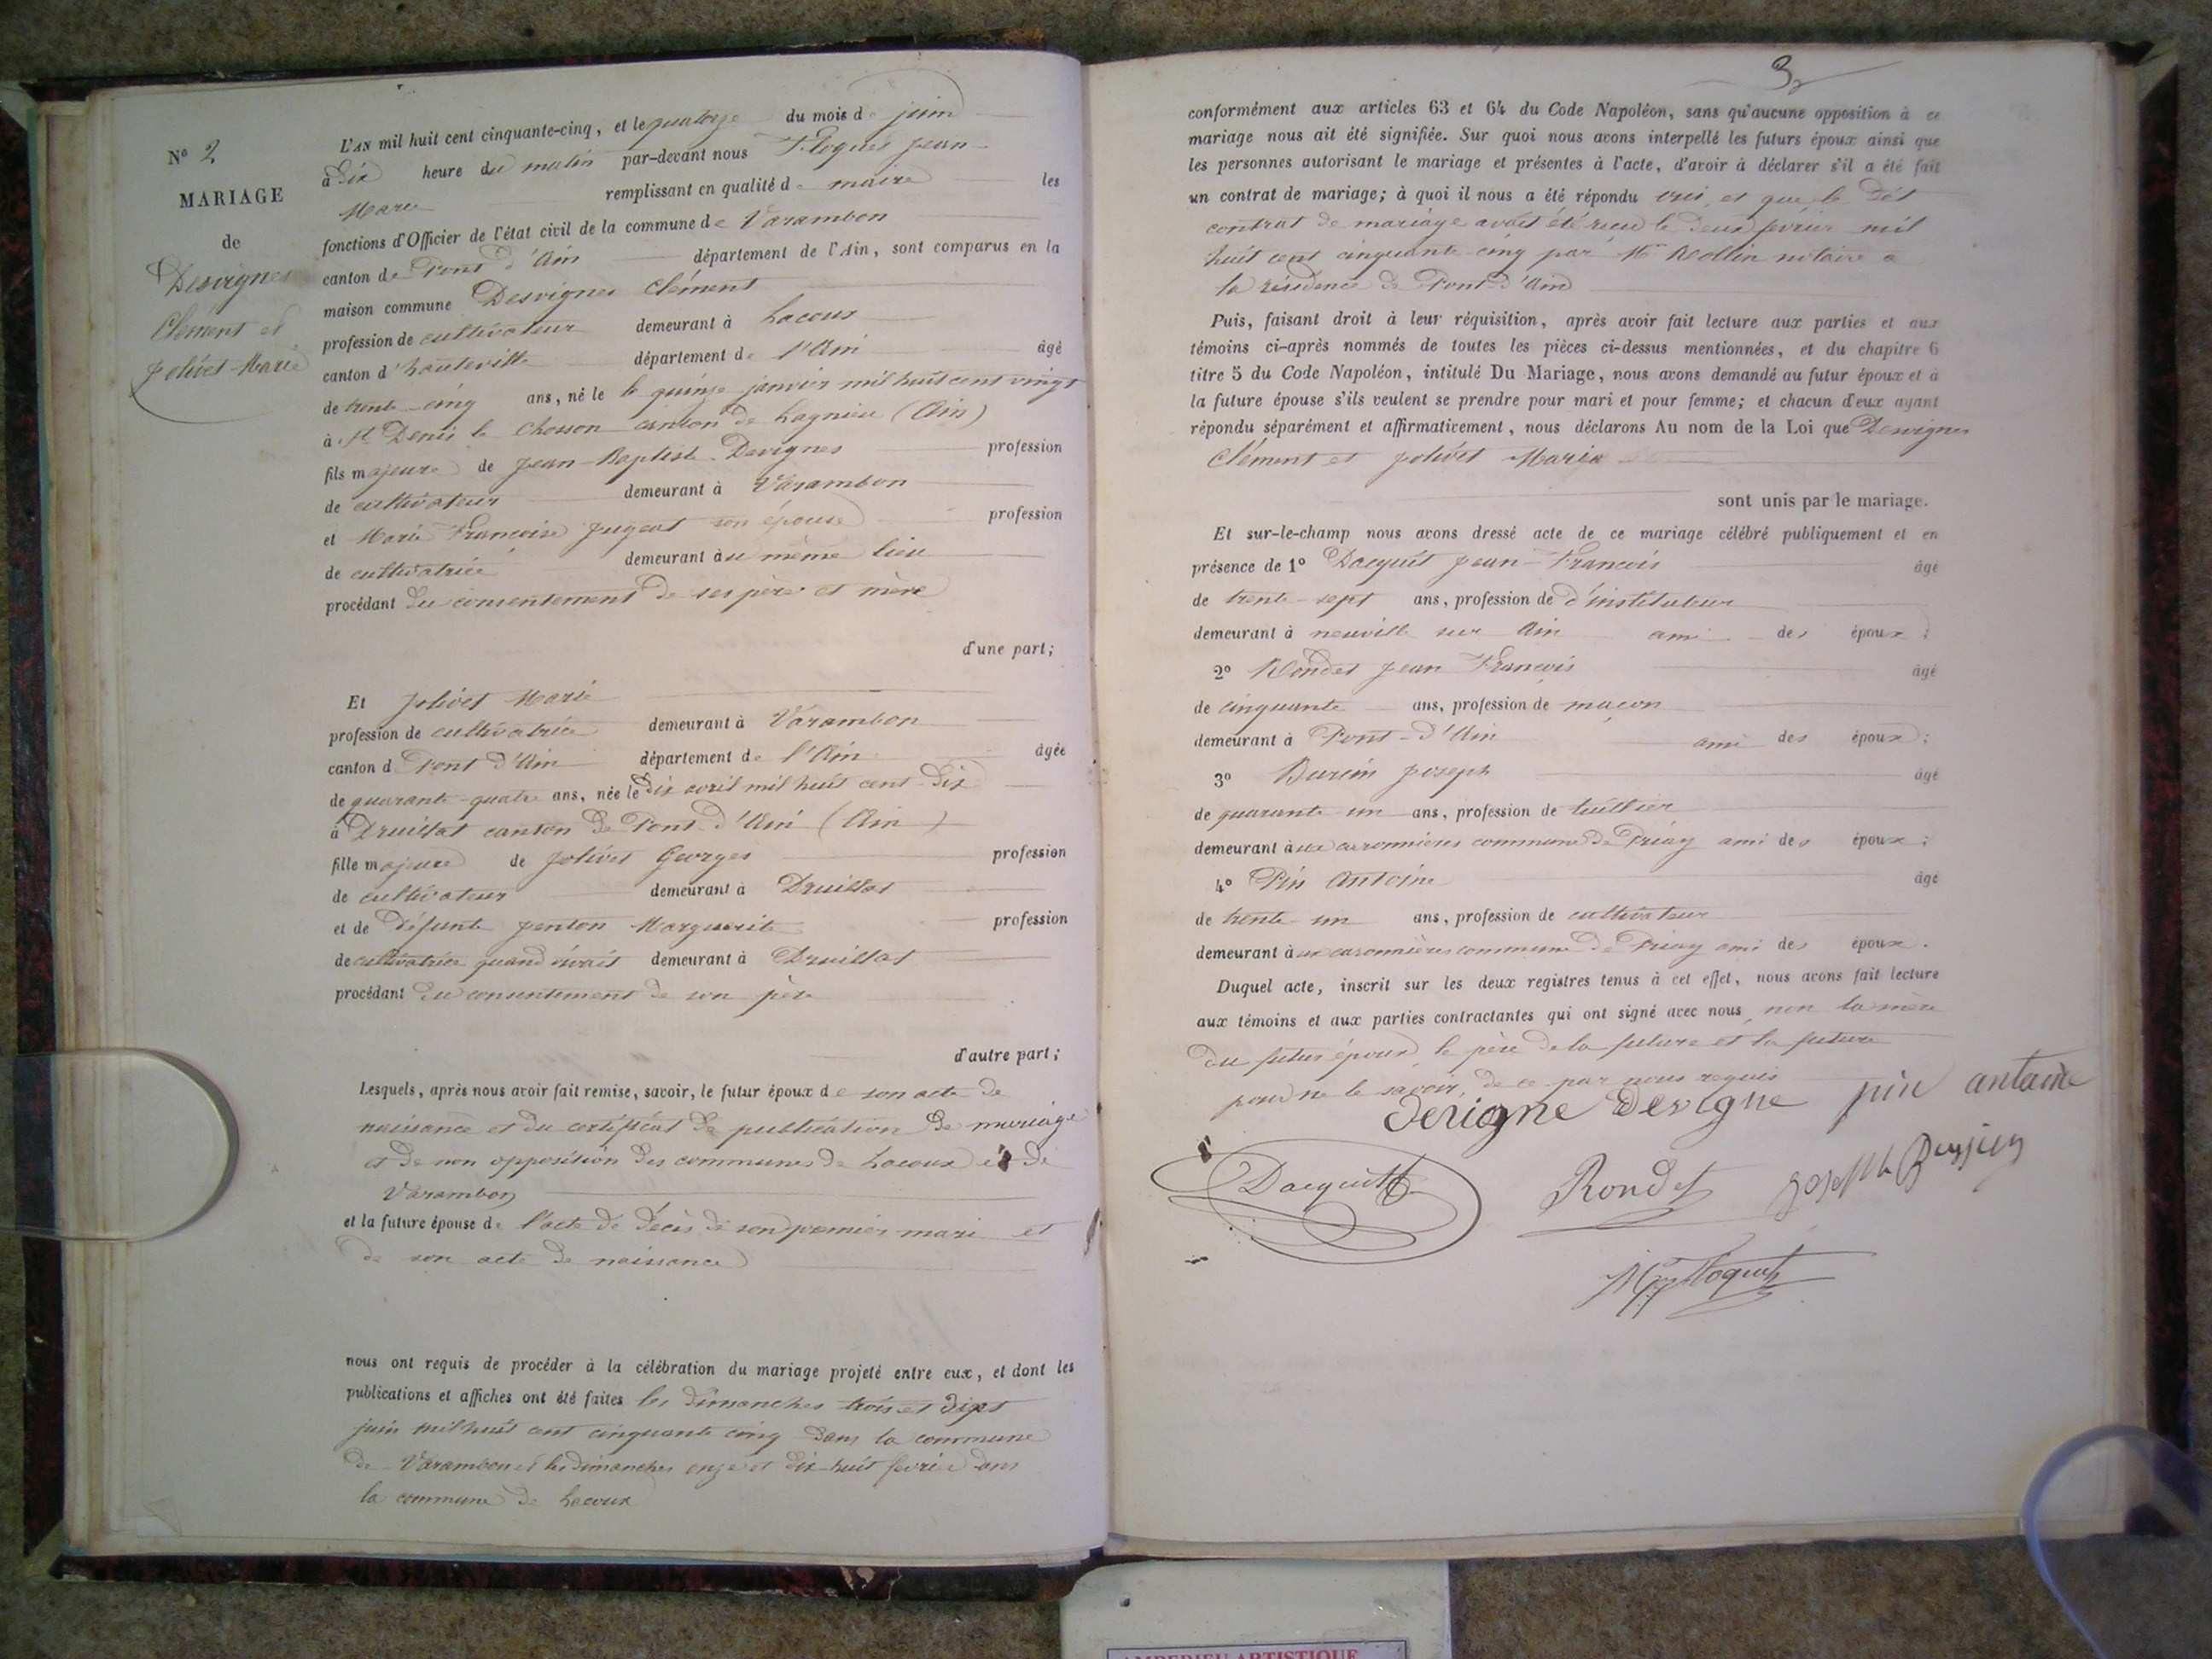 N° 2
MARIAGE
de
Desvignes
Clément et
Jolivet Marie
L'AN mil huit cent cinquante-cinq, et le quatorze du mois de juin
à dix heure du matin par-devant nous Floquet Jean
Marie remplissant en qualité de maire les
fonctions d'Officier de l'état civil de la commune de Varambon
canton de Pont d'Ain département de l'Ain, sont comparus en la
maison commune Desvignes Clément
profession de cultivateur demeurant à Lacoux
canton d'hauteville département de l'Ain âgé
de trente-cinq ans, né le le quinze janvier mil huit cent vingt
à St Denis le Chosson canton de Lagnieu (Ain)
fils majeure de Jean-Baptiste Devignes profession
de cultivateur demeurant à Varambon
et Marie Francoise Jugeat son épouse profession
de cultivatrice demeurant au même lieu
procédant du consentement de ses père et mère
d'une part;
Et Jolivet Marie
profession de cultivatrice demeurant à Varambon
canton d Pont d'Ain département de l'Ain âgée
de quarante-quatre ans, née le dix avril mil huit cent dix
à Druillat canton de Pont d'Ain (Ain)
fille majeure de Jolivet Georges profession
de cultivateur demeurant à Druillat
et de défunte Marguerite profession
de cultivatrice quand vivait demeurant à Druillat
procédant du consentement de son père
d'autre part;
Lesquels, après nous avoir fait remise, savoir, le futur époux de son acte de
naissance et du certificat de publication de mariage
et de non opposition des communes de Lacoux et de
Varambon
et la future épouse de l'acte de décès de son premier mari et
de son acte de naissance
nous ont requis de procéder à la célébration du mariage projeté entre eux, et dont les
publications et affiches ont été faites les dimanches trois et dix
juin mil huit cent cinquante cinq dans la commune
de Varambon et les dimanches onze et dix-huit février dans
la commune de Lacoux
3
conformément aux articles 63 et 64 du Code Napoléon, sans qu'aucune opposition à ce
mariage nous ait été signifiée. Sur quoi nous avons interpellé les futurs époux ainsi que
les personnes autorisant le mariage et présentes à l'acte, d'avoir à déclarer s'il a été fait
un contrat de mariage; à quoi il nous a été répondu oui, et que le dit
contrat de mariage avait été recu le deux février mil
huit cent cinquante-cinq par Me notaire a
la résidence de Pont-d'Ain
Puis, faisant droit à leur réquisition, après avoir fait lecture aux parties et aux
témoins ci-après nommés de toutes les pièces ci-dessus mentionnées, et du chapitre 6
titre 5 du Code Napoléon, intitulé Du Mariage, nous avons demandé au futur époux et à
la future épouse s'ils veulent se prendre pour mari et pour femme; et chacun d'eux ayant
répondu séparément et affirmativement, nous déclarons Au nom de la Loi que Desvignes
Clément et Jolivet Marie
sont unis par le mariage.
Et sur-le-champ nous avons dressé acte de ce mariage célébré publiquement et en
présence de 1° Dacquit Jean-Francois âgé
de trente-sept ans, profession de d'instituteur
demeurant à neuville sur Ain ami des époux;
2° Rondet Jean Francois âgé
de cinquante ans, profession de macon
demeurant à Pont-d'Ain ami des époux;
3° Joseph âgé
de quarante un ans, profession de tuillier
demeurant à commune de Priay ami des époux;
4° Pin Antoine âgé
de trente un ans, profession de cultivateur
demeurant à commune de Priay ami des époux.
Duquel acte, inscrit sur les deux registres tenus à cet effet, nous avons fait lecture
aux témoins et aux parties contractantes qui ont signé avec nous, non la mère
du futur époux, le père de la future et la future
pour ne le savoir, de ce par nous requis
Devigne Devigne pin antoine
Dacquit Rondet Joseph
Floquet
AMBERIEU ARTISTIQUE